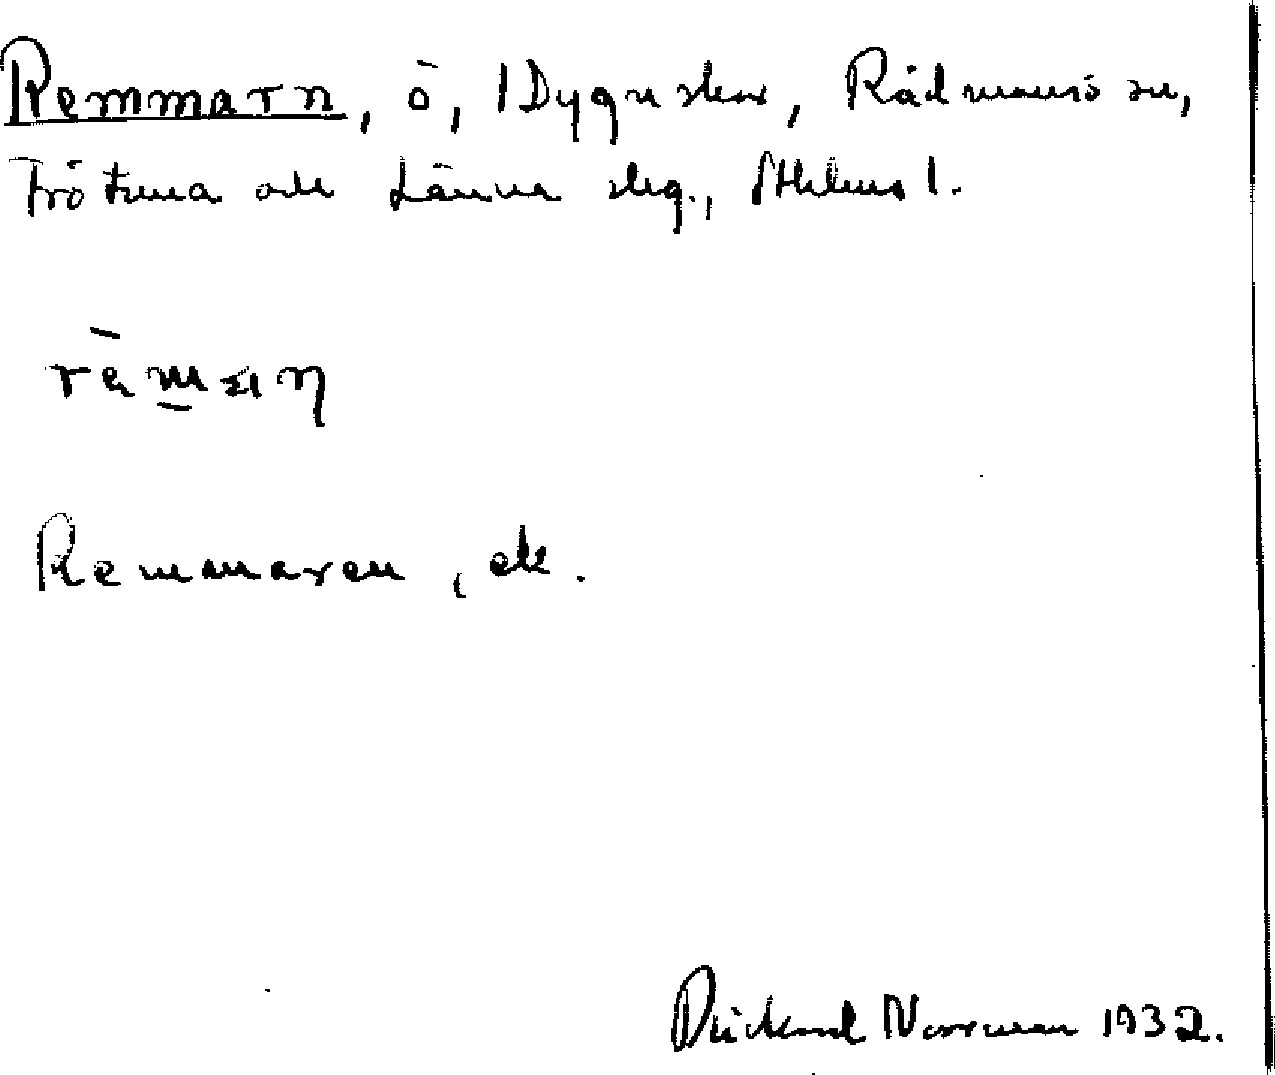 Remmarn, ö, Rådmansö sn,
Frötuna och Länna skg., Sthlms l.
Remmaren, ek.
Rickard Norrman 1932.